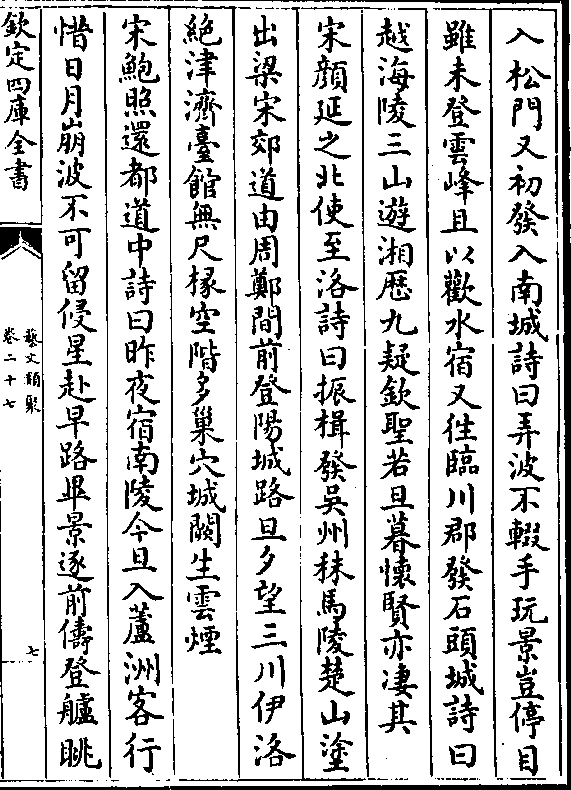 入松門又初發入南城詩曰弄波不輟手玩景豈停目
雖未登雲峰且以歡水宿又徃臨川郡發石頭城詩曰
越海陵三山遊湘歷九疑欽聖若旦暮懷賢亦凄其
宋顔延之北使至洛詩曰振楫發吳州秣馬陵楚山塗
出梁宋郊道由周鄭間前登陽城路旦夕望三川伊洛
絶津濟臺館無尺椽空階多巢穴城闕生雲煙
宋鮑照還都道中詩曰昨夜宿南陵今旦入蘆洲客行
惜日月崩波不可留侵星赴早路畢景逐前儔登艫眺
欽定四庫全書
藝文類聚
卷二十七
七